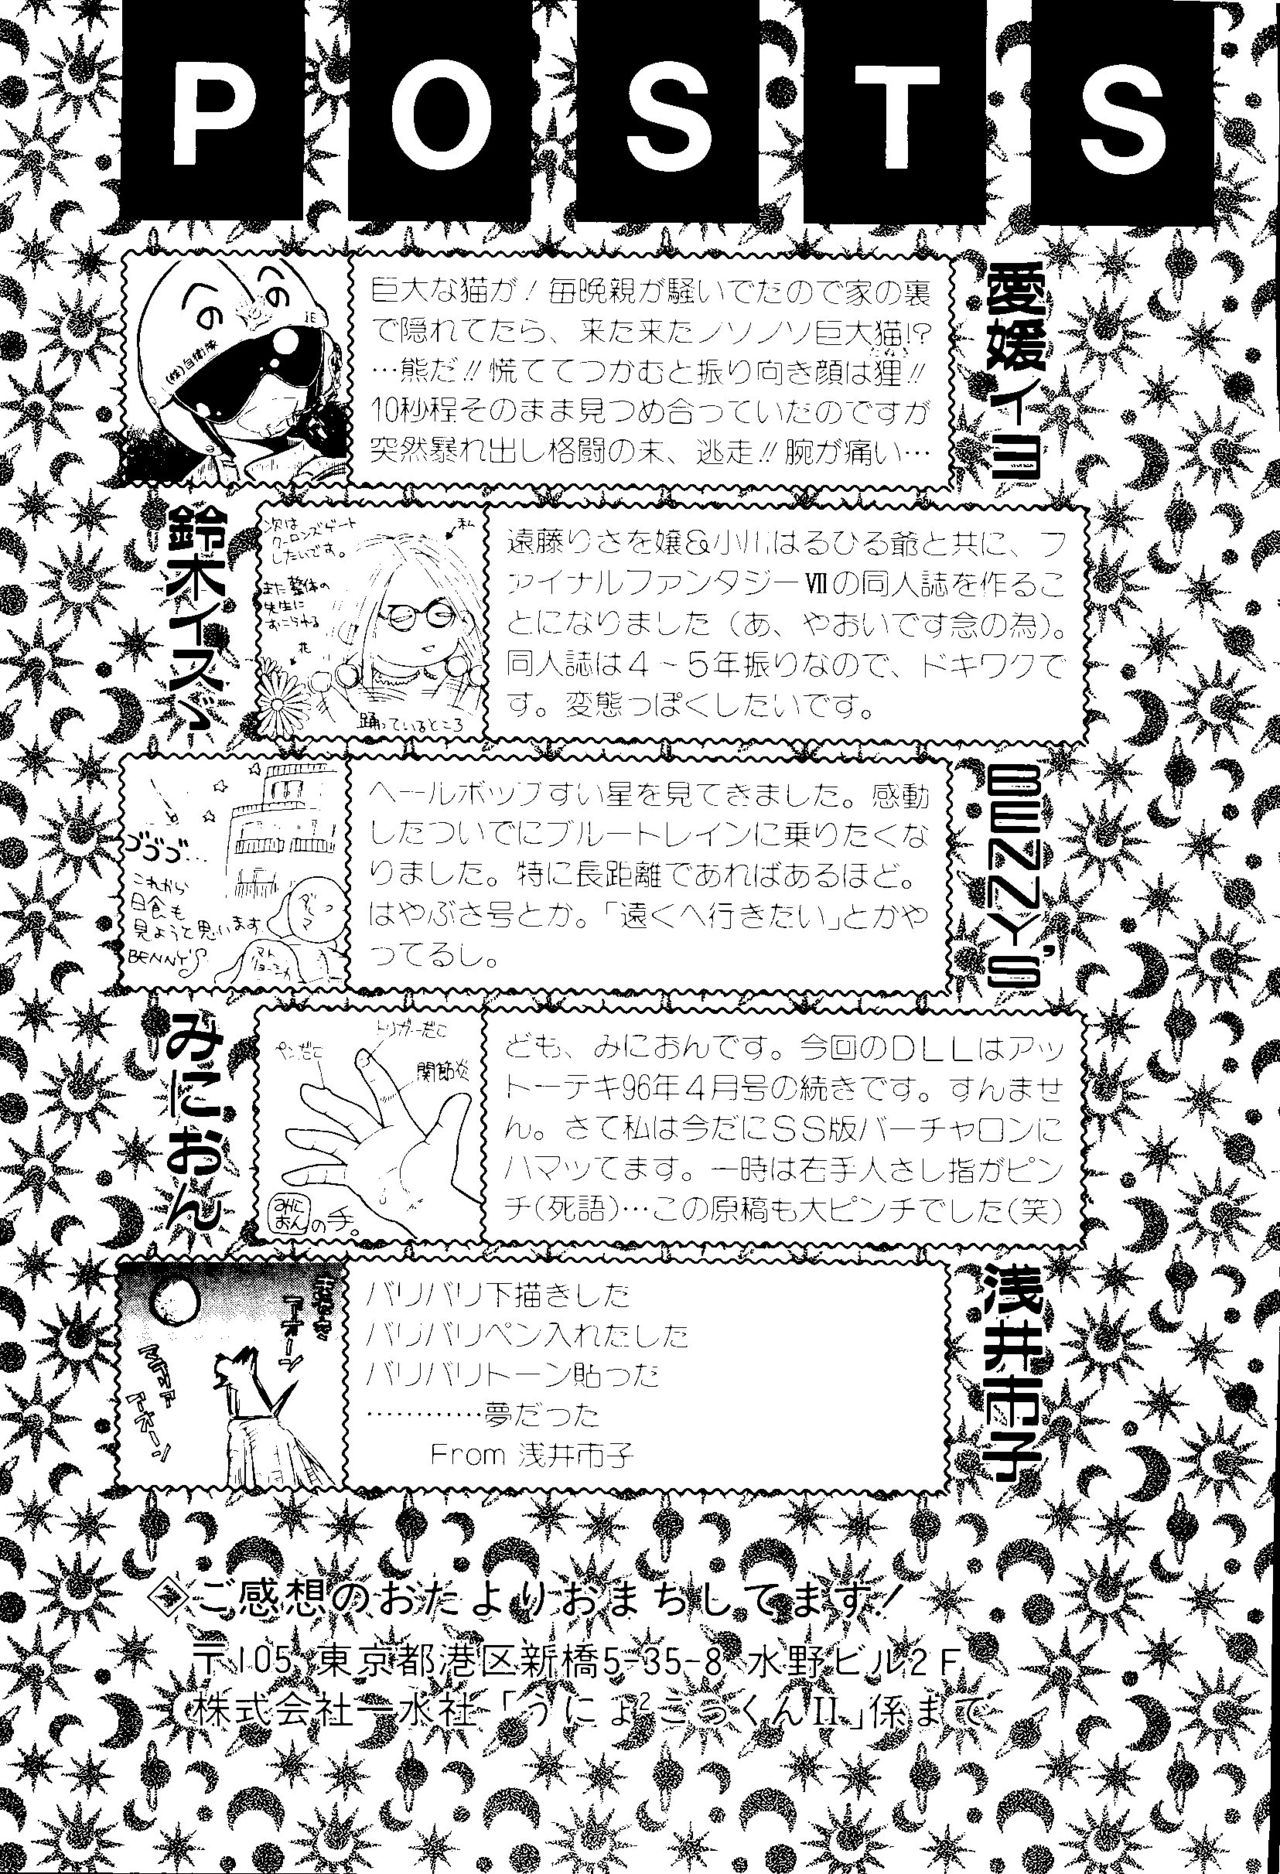 POSTS
愛媛イヨ
くの
くの
(株)自衛隊
巨大な猫が!毎晩親が騒いでたので家の裏
で隠れてたら、来た来たノソノソ巨大猫!?
…熊だ!!慌ててつかむと振り向き顔は狸!!
10秒程そのまま見つめ合っていたのですが
突然暴れ出し格闘の末、逃走!!腕が痛い…
鈴木イスゞ
次は
クーロンズゲート
したいです。
私
また整体の
先生に
おこられる
花
踊っているところ
遠藤りさを嬢&小川はるひる爺と共に、フ
ァイナルファンタジーⅦの同人誌を作るこ
とになりました(あ、やおいです念の為)。
同人誌は4~5年振りなので、ドキワクで
す。変態っぽくしたいです。
BENNY'S
ゴゴゴ…
これから
日食も
見ようと思います
BENNY'S
ヘールボップすい星を見てきました。感動
したついでにブルートレインに乗りたくな
りました。特に長距離であればあるほど。
はやぶさ号とか。「遠くへ行きたい」とかや
ってるし。
みにおん
トリガーだこ
ペンだこ
関節炎
みにおんの手。
ども、みにおんです。今回のDLLはアッ
トーテキ96年4月号の続きです。すんませ
ん。さて私は今だにSS版バーチャロンに
ハマッてます。一時は右手人さし指がピン
チ(死語)…この原稿も大ピンチでした(笑)
浅井市子
バリバリ下描きした
バリバリペン入れたした
バリバリトーン貼った
…………夢だった
From 浅井市子
ご感想のおたよりおまちしてます!
〒105 東京都港区新橋5-35-8 水野ビル2F
株式会社一水社「うにょ²ごっくんII」係まで